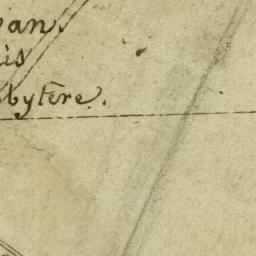 pan.
is
bytère.